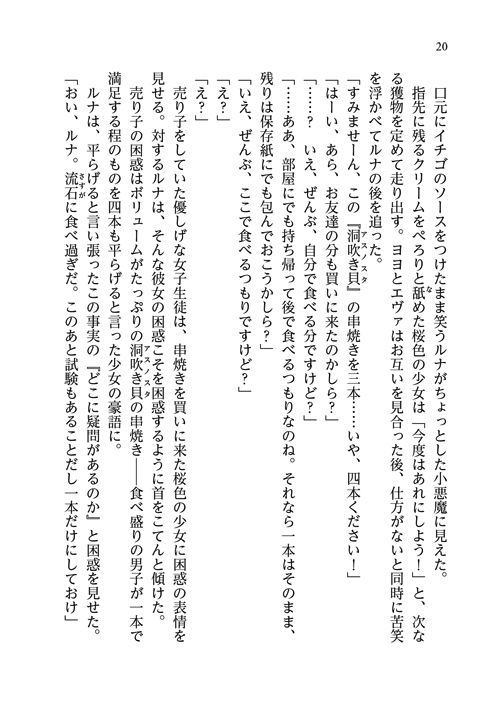 20
口元にイチゴのソースをつけたまま笑うルナがちょっとした小悪魔に見えた。
指先に残るクリームをぺろりと舐めた桜色の少女は「今度はあれにしよう！」と、次な
る獲物を定めて走り出す。ヨヨとエヴァはお互いを見合った後、仕方がないと同時に苦笑
を浮かべてルナの後を追った。
「すみませーん、この『洞吹き貝』の串焼きを三本……いや、四本ください！」
「はーい、あら、お友達の分も買いに来たのかしら？」
「……？　いえ、ぜんぶ、自分で食べる分ですけど？」
「……ああ、部屋にでも持ち帰って後で食べるつもりなのね。それなら一本はそのまま、
残りは保存紙にでも包んでおこうかしら？」
「いえ、ぜんぶ、ここで食べるつもりですけど？」
「え？」
「え？」
売り子をしていた優しげな女子生徒は、串焼きを買いに来た桜色の少女に困惑の表情を
見せる。対するルナは、そんな彼女の困惑こそを困惑するように首をこてんと傾けた。
売り子の困惑はボリュームがたっぷりの洞吹き貝の串焼き――食べ盛りの男子が一本で
満足する程のものを四本も平らげると言った少女の豪語に。
ルナは、平らげると言い張ったこの事実の『どこに疑問があるのか』と困惑を見せた。
「おい、ルナ。流石に食べ過ぎだ。このあと試験もあることだし一本だけにしておけ」